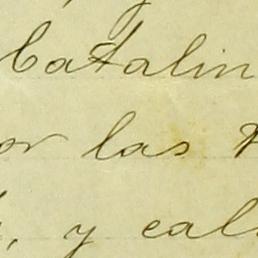 Catalin
or las
, y cal